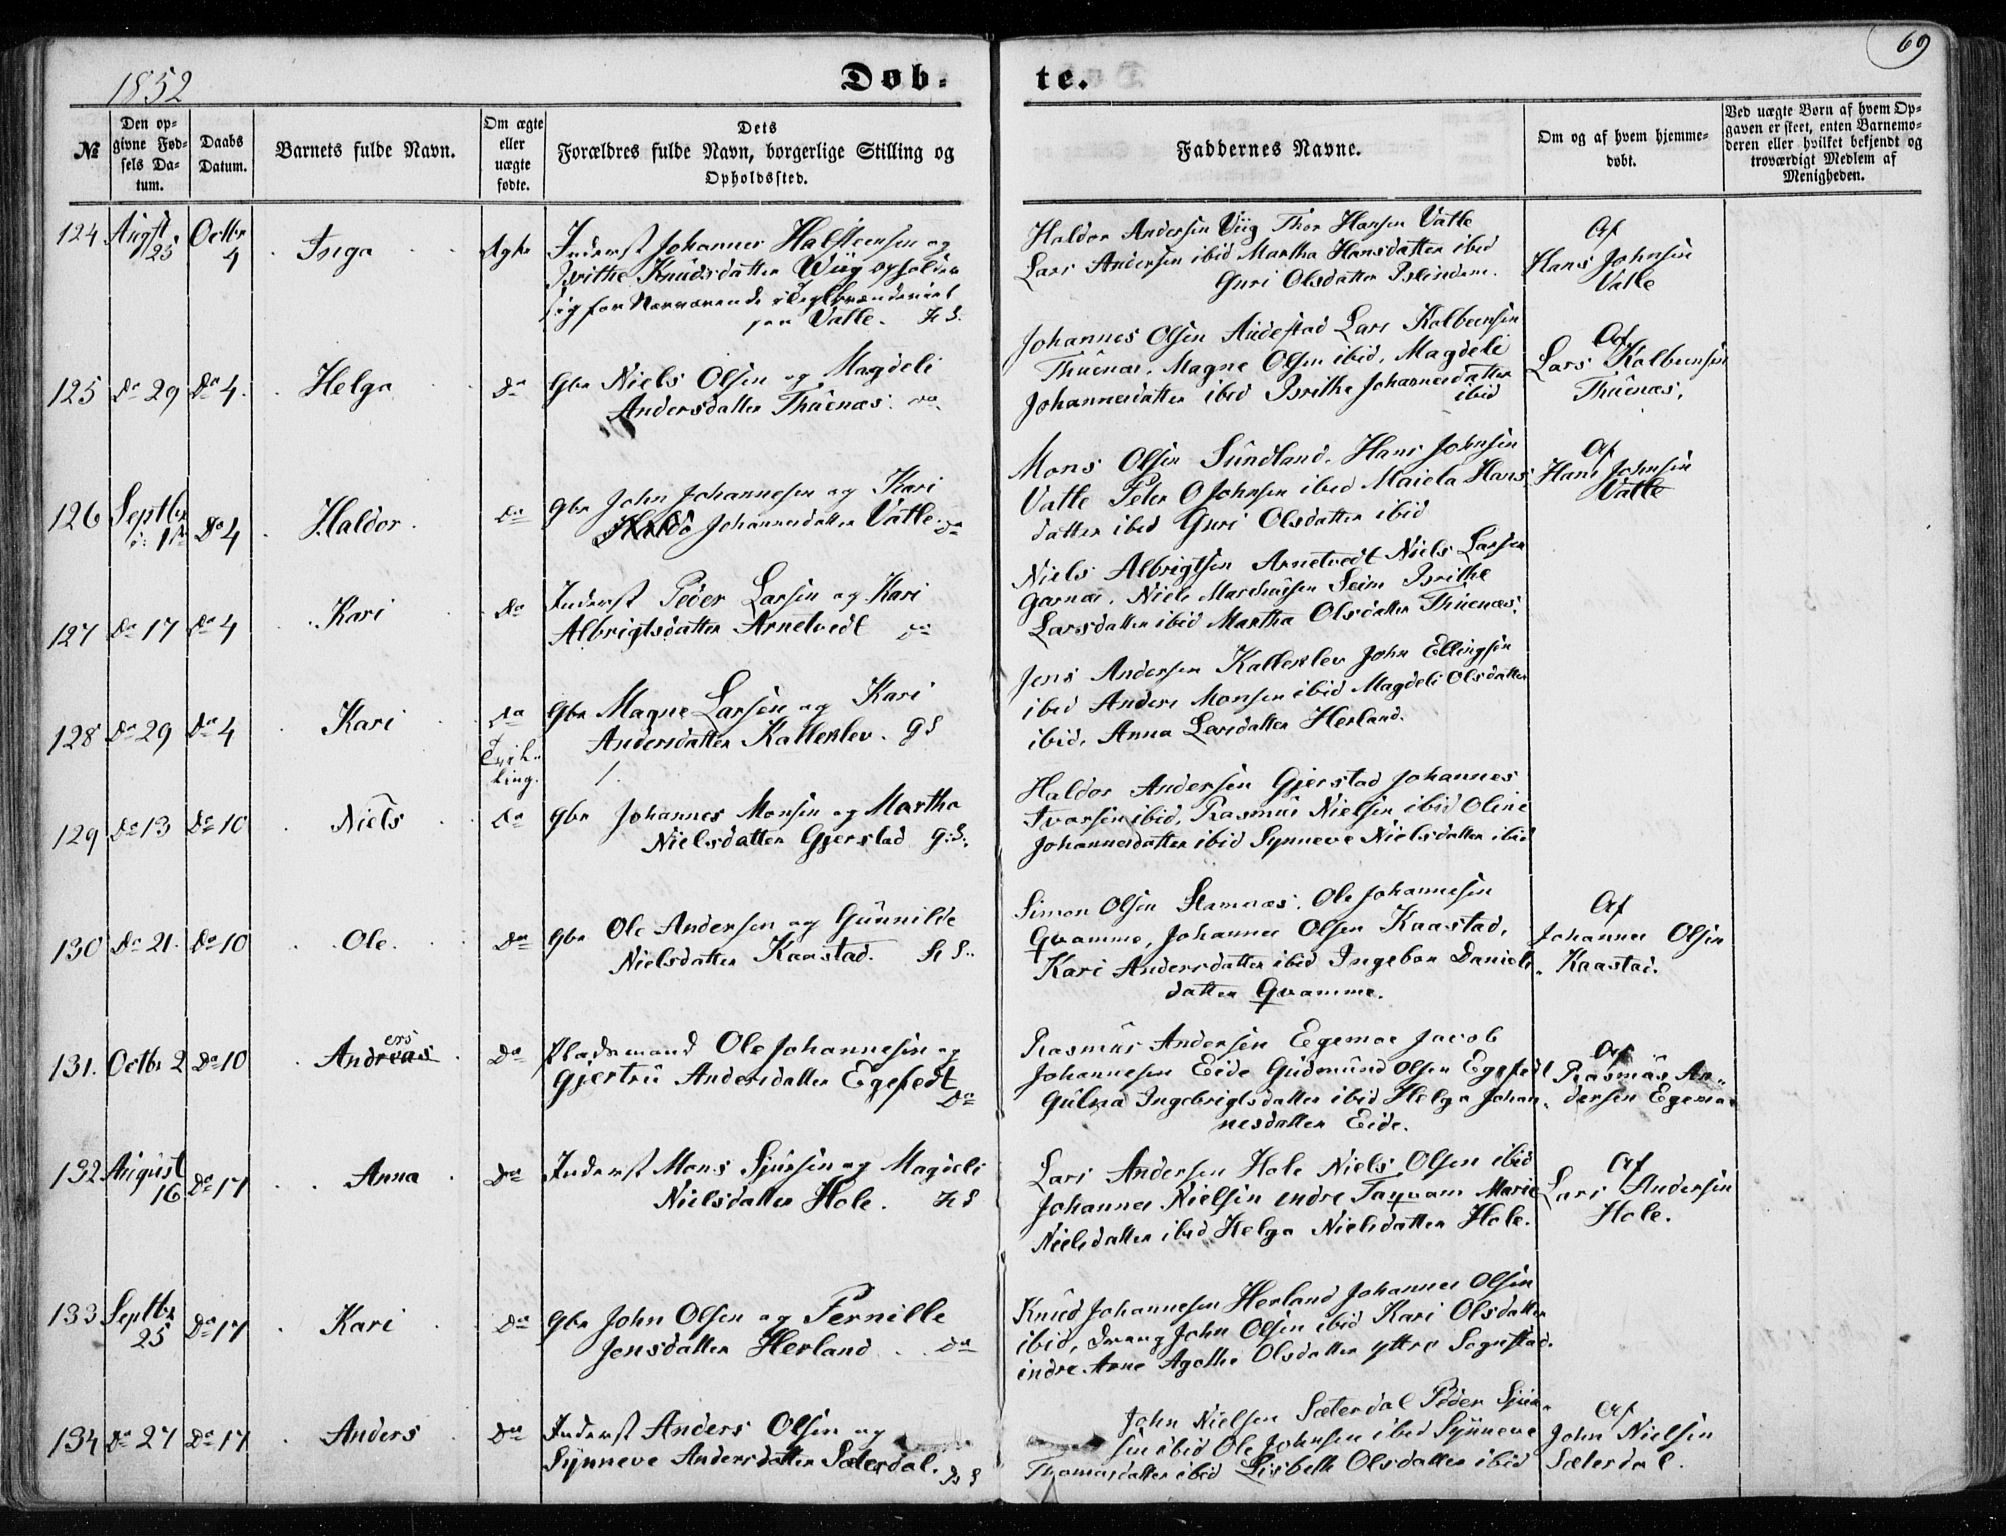 1852
Døb-
te.
69
№
Den op-
givne Fød-
sels Da-
tum.
Daabs
Datum.
Barnets fulde Navn.
Om ægte
eller
uægte
fødte.
Dets
Forældres fulde Navn, borgerlige Stilling og
Opholdssted.
Faddernes Navne.
Om og af hvem hjemme-
døbt.
Ved uægte Børn af hvem Op-
gaven er skeet, enten Barnemo-
deren eller hvilket bekjendt og
troværdigt Medlem af
Menigheden.
124 Augst 25 Octbr 4 Inga Ægte
Inderst Johannes Halsteensen og
Brithe Knudsdatter Wiig opholder
sig for Nærværende i Teglbrænderiet
paa Vatle.
Haldor Andersen Viig Thor Hansen Vatle
Lars Andersen ibid Martha Hansdatter ibid
Guri Olsdatter
Af
Hans Johnsen
Vatle
125 Do 29 Do 4. Helga Do
Gbr Niels Olsen og Magdeli
Andersdatter Thuenæs. Do
Johannes Olsen Audestad Lars Kolbeensen
Thuenæs. Magne Olsen ibid. Magdeli
Johannesdatter ibid Brithe Johannesdatter
ibid
Af
Lars Kolbeensen
Thuenæs.
126 Septbr 1 Do 4 Haldor Do
Gbr John Johannesen og Kari
Johannesdatter Vatle. Do
Mons Olsen Sundland. Hans Johnsen
Vatle Peter O Johnsen ibid Maiela Hans
datter ibid Guri Olsdatter ibid
Af
Hans Johnsen
Vatle
127 Do 17 Do 4 Kari Do
Inderst Peder Larsen og Kari
Albrigtsdatter Arnetvedt Do
Niels Albrigtsen Arnetvedt Niels Larsen
Garnæs. Niels Marchusen Seim Brithe
Larsdatter ibid Martha Olsdatter Thuenæs.
128 Do 29 Do 4 Kari Do
Gbr Magne Larsen og Kari
Andersdatter Kalleklev. GS
Jens Andersen Kalleklev John Ellingsen
ibid Anders Monsen ibid Magdeli Olsdatter
ibid. Anna Larsdatter Herland.
Tvil-
ling.
1.
129 Do 13 Do 10 Niels Do
Gbr Johannes Monsen og Martha
Nielsdatter Gjerstad G:S.
Haldor Andersen Gjerstad Johannes
Ivarsen ibid, Rasmus Nielsen ibid Oline
Johannesdatter ibid Synneve Nielsdatter ibid
130 Do 21. Do 10 Ole. Do
Gbr Ole Andersen og Gunnilde
Nielsdatter Kaastad.
Simon Olsen Stamnæs. Ole Johannesen
Qvamme, Johannes Olsen Kaastad.
Kari Andersdatter ibid Ingebor Daniels
datter Qvamme.
Af
Johannes Olsen
Kaastad.
131. Octbr 2 Do 10 Andreas Do
ers
Pladsmand Ole Johannesen og
Gjertru Andersdatter Egefedt
Do
Rasmus Andersen Egemoe Jacob
Johannesen Eide Gudmund Olsen Egefedt
Gulna Ingebrigtsdatter ibid Helga Johan
nesdatter Eide.
Af
Rasmus An-
dersen Egemoe
132 August 16 Do 17 Anna Do
Inderst Mons Sjursen og Magdeli
Nielsdatter Hole.
Lars Andersen Hole Niels Olsen ibid
Johannes Nielsen indre Taqvam Marie
Nielsdatter ibid Helga Nielsdatter Hole.
Af
Lars Andersen
Hole.
133 Septbr 25 Do 17 Kari Do
Gbr John Olsen og Pernille
Jensdatter Herland. Do
Knud Johannesen Herland Johannes Olsen
ibid, Drang John Olsen ibid Kari Olsdatter
indre Arne Agathe Olsdatter yttre Sognstad.
134 Do 27 Do 17 Anders Do
Inderst Anders Olsen og
Synneve Andersdatter Sæterdal.
John Nielsen Sæterdal Peder Sjur-
sen ibid Ole Johnsen ibid Synneve
Thomasdatter ibid Lisbeth Olsdatter ibid
Af
John Nielsen
Sæterdal.